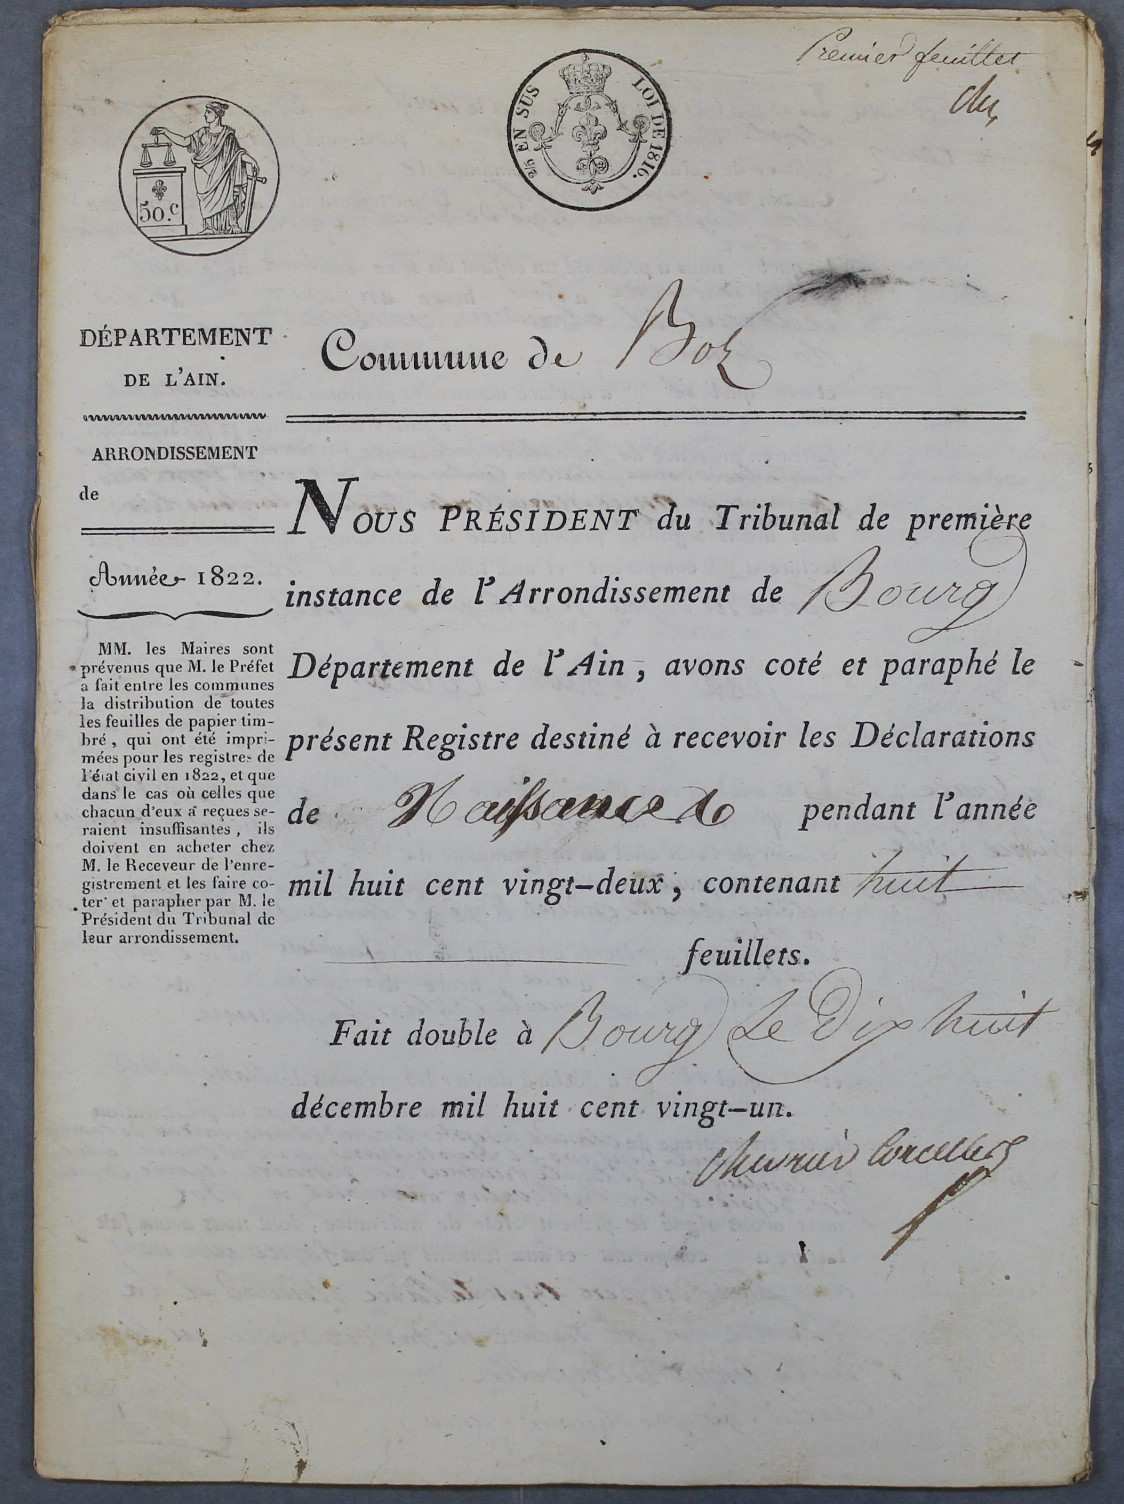 Premier feuillet
2/5 EN SUS LOI DE 1816.
50.c
DÉPARTEMENT
DE L'AIN.
Commune de Boz
ARRONDISSEMENT
de
Année 1822.
MM. les Maires sont
prévenus que M. le Préfet
a fait entre les communes
la distribution de toutes
les feuilles de papier tim-
bré, qui ont été impri-
mées pour les registres de
l'état civil en 1822, et que
dans le cas où celles que
chacun d'eux a reçues se-
raient insuffisantes, ils
doivent en acheter chez
M. le Receveur de l'enre-
gistrement et les faire co-
ter et parapher par M. le
Président du Tribunal de
leur arrondissement.
NOUS PRÉSIDENT du Tribunal de première
instance de l'Arrondissement de Bourg
Département de l'Ain, avons coté et paraphé le
présent Registre destiné à recevoir les Déclarations
de Naissances pendant l'année
mil huit cent vingt-deux, contenant huit
feuillets.
Fait double à Bourg Le Dix huit
décembre mil huit cent vingt-un.